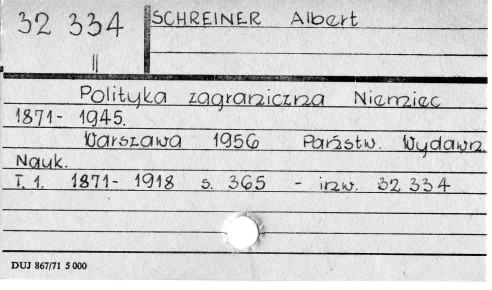 32 334
SCHREINER Albert
||
Polityka zagraniczna Niemiec
1871- 1945.
Warszawa 1956 Państw. Wydawn.
Nauk.
T. 1. 1871- 1918 s. 365 - inw. 32 334
DUJ 867/71 5 000